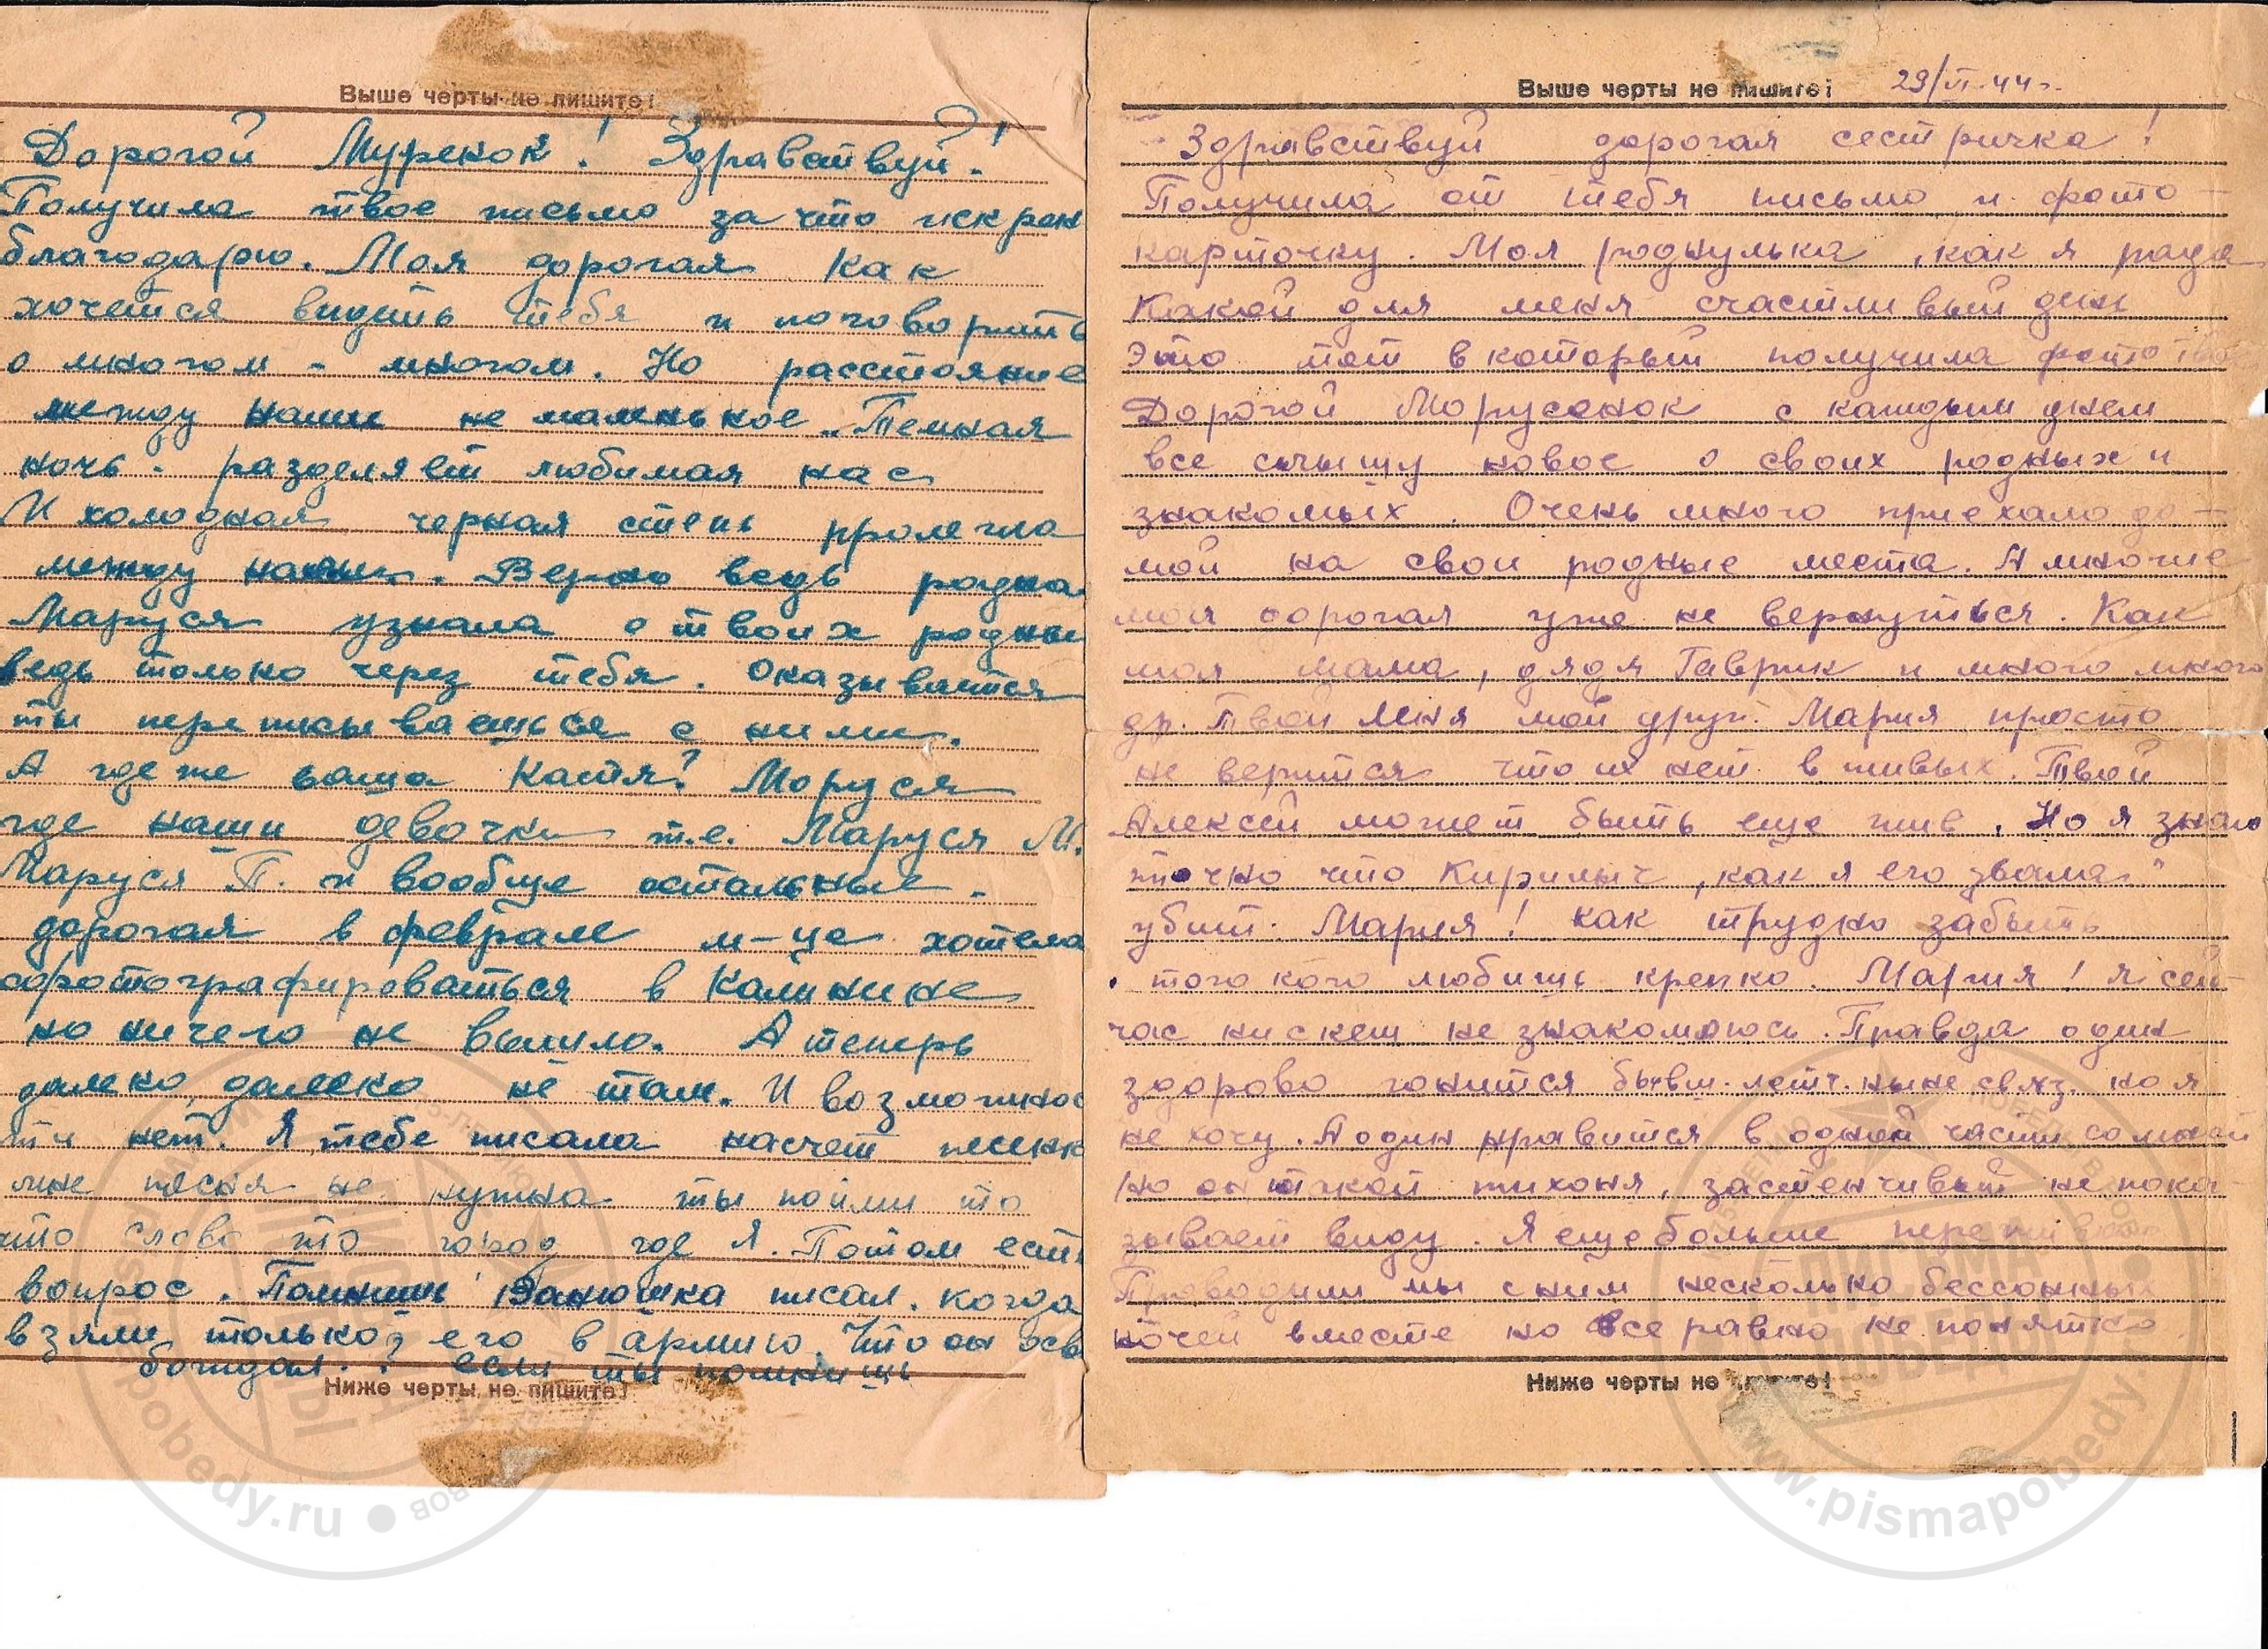 Выше черты не пишите!
Дорогой Мурекок! Здравствуй!
Получила твое письмо за что искрен
благодарю. Моя дорогая как
хочется видить тебя и поговорить
о многом - многом. Но расстояние
между нами не маленькое. Темная
ночь. разделяет любимая нас
И холодная черная степь пролегла
между нами. Верно ведь родна
Маруся узнала о твоих родны
ведь только через тебя. Оказывается
ты переписываешься с ними.
А где же ваша Катя? Моруся
где наши девочки т.е. Маруся М.
Маруся П. и вообще остальные.
дорогая в феврале м-це хотела
сфотографироваться в Калинине
но ничего не вышло. А теперь
далеко, далеко не там. И возможнос
ти нет. Я тебе писала насчет песенк
мне песня не нужна ты пойми то
что слово то город где Я. Потом есть
вопрос. Помнишь Ванюшка писал. когда
взяли, только его в армию. Что он осв
бождал. ? если ты помнишь
Ниже черты не пишите!
Выше черты не пишите! 29/VI-44г.
Здравствуй дорогая сестричка!
Получила от тебя письмо и фото-
карточку. Моя роднулька, как я рада
Какой для меня счастливый день
Это тот в который получила фото тво
Дорогой Морусенок с каждым днем
все слышу новое о своих родных и
знакомых. Очень много приехало до-
мой на свои родные места. А многие
моя дорогая уже не вернуться. Как
моя мама, дядя Гаврик и много много
др. Твой Леня мой друг. Мария просто
не верится что их нет в живых. Твой
Алексей может быть еще жив. Но я знаю
точно что Кирилыч, как я его звала"
убит. Мария! как трудно забыть
того кого любишь крепко. Мария! Я сей-
час ни с кем не знакомлюсь. Правда один
здорово гонится бывш. летч. ныне связ. но я
не хочу. А один нравится в одной части со мной
но он такой тихоня, застенчивый не пока-
зывает виду. Я еще больше переживаю
Проводили мы с ним несколько бессонных
ночей вместе но все равно не понятно.
Ниже черты не пишите!
www.pismapobedy.ru
ПИСЬМА
ПОБЕДЫ